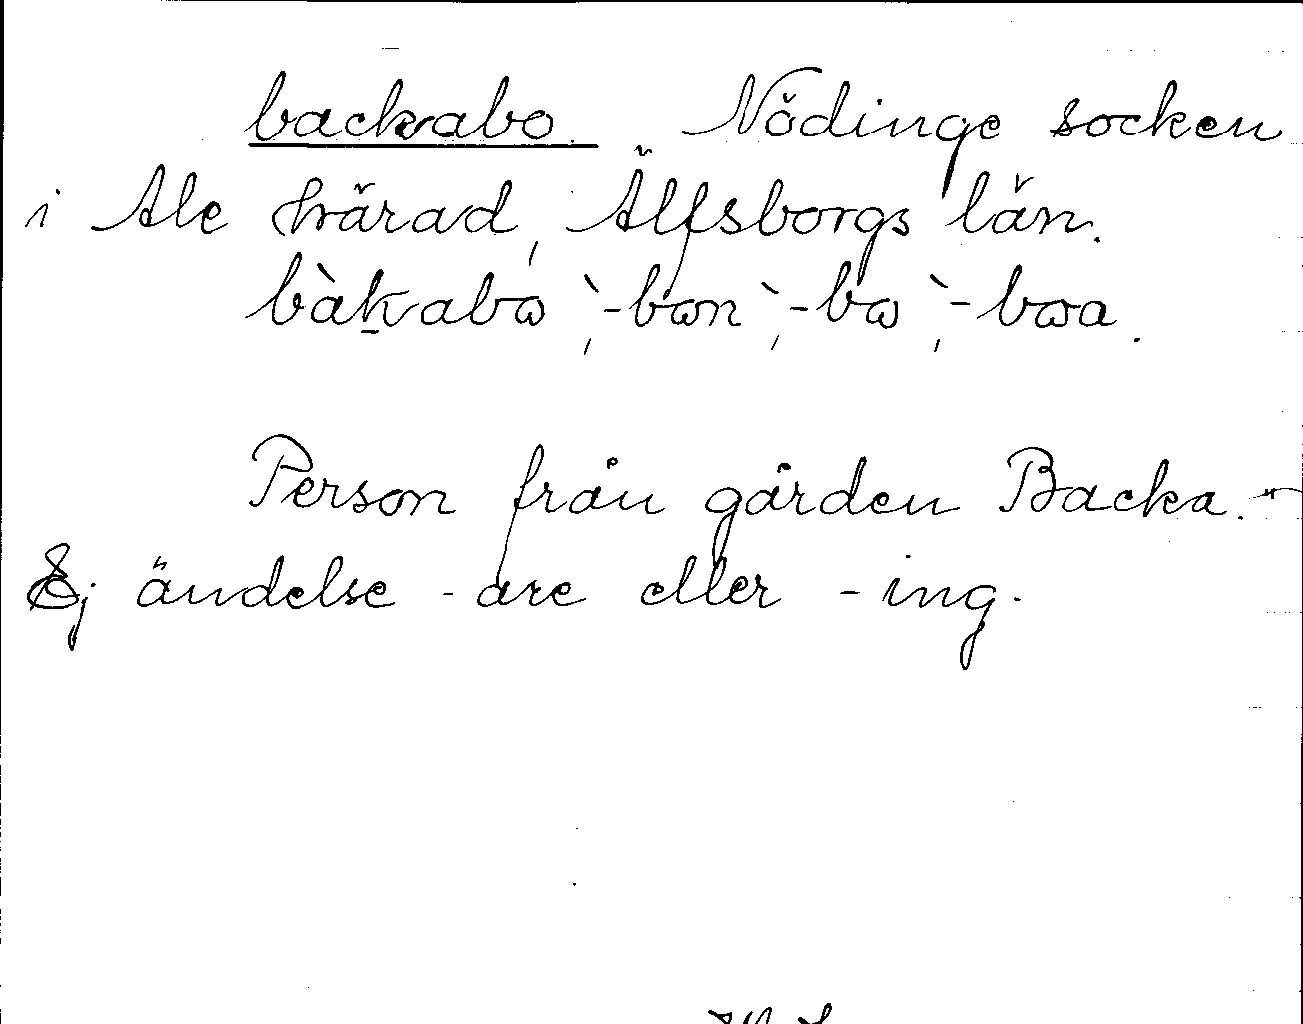 backabo. Nödinge socken
i Ale härad, Älfsborgs län.
bàk̲abɷ ̀, -bɷn ̀, -bɷ ̀, -bɷa.
Person från gården Backa. -
Ej ändelse -are eller -ing.